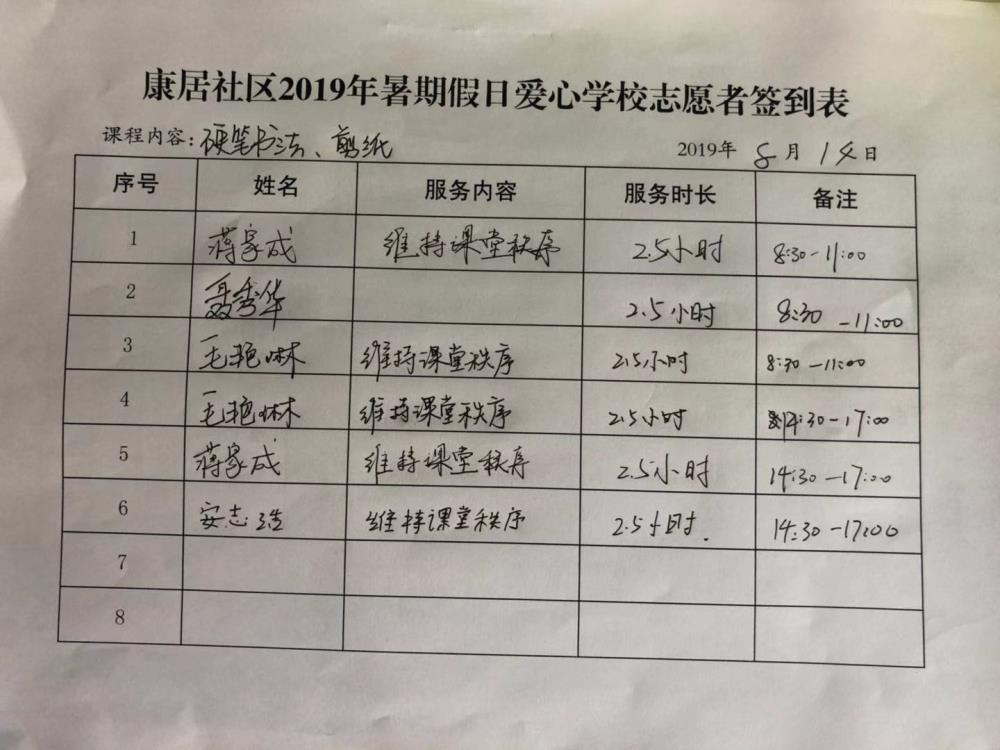 康居社区2019年暑期假日爱心学校志愿者签到表
课程内容：硬笔书法、剪纸 2019年 8月 14日
序号 姓名 服务内容 服务时长 备注
1 蒋家成 维持课堂秩序 2.5小时 8:30-11:00
2 聂秀华 2.5小时 8:30-11:00
3 毛艳琳 维持课堂秩序 2.5小时 8:30-11:00
4 毛艳琳 维持课堂秩序 2.5小时 14:30-17:00
5 蒋家成 维持课堂秩序 2.5小时 14:30-17:00
6 安志浩 维持课堂秩序 2.5小时. 14:30-17:00
7
8